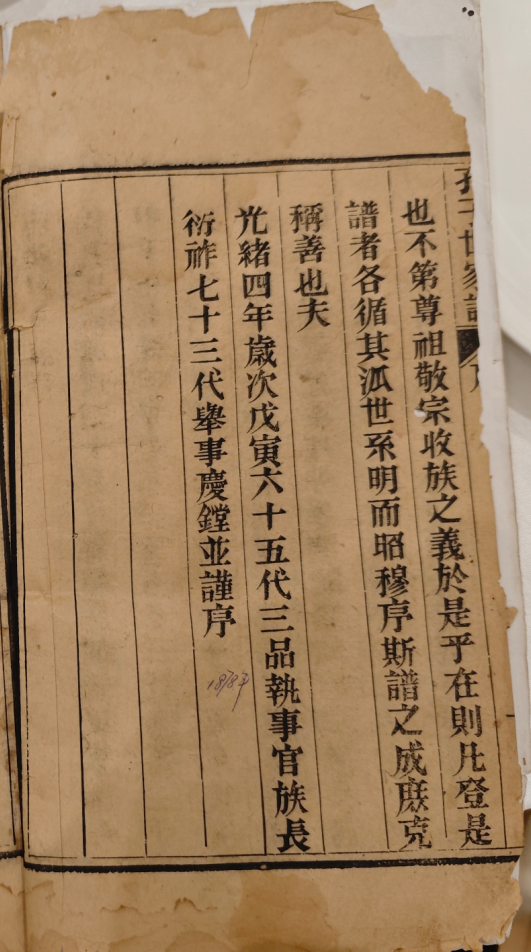 孔子世家譜 序
也不第尊祖敬宗收族之義於是乎在則凡登是
譜者各循其派世系明而昭穆序斯譜之成庶克
稱善也夫
光緒四年歲次戊寅六十五代三品執事官族長
衍祚七十三代舉事慶鏜並謹序
1878年